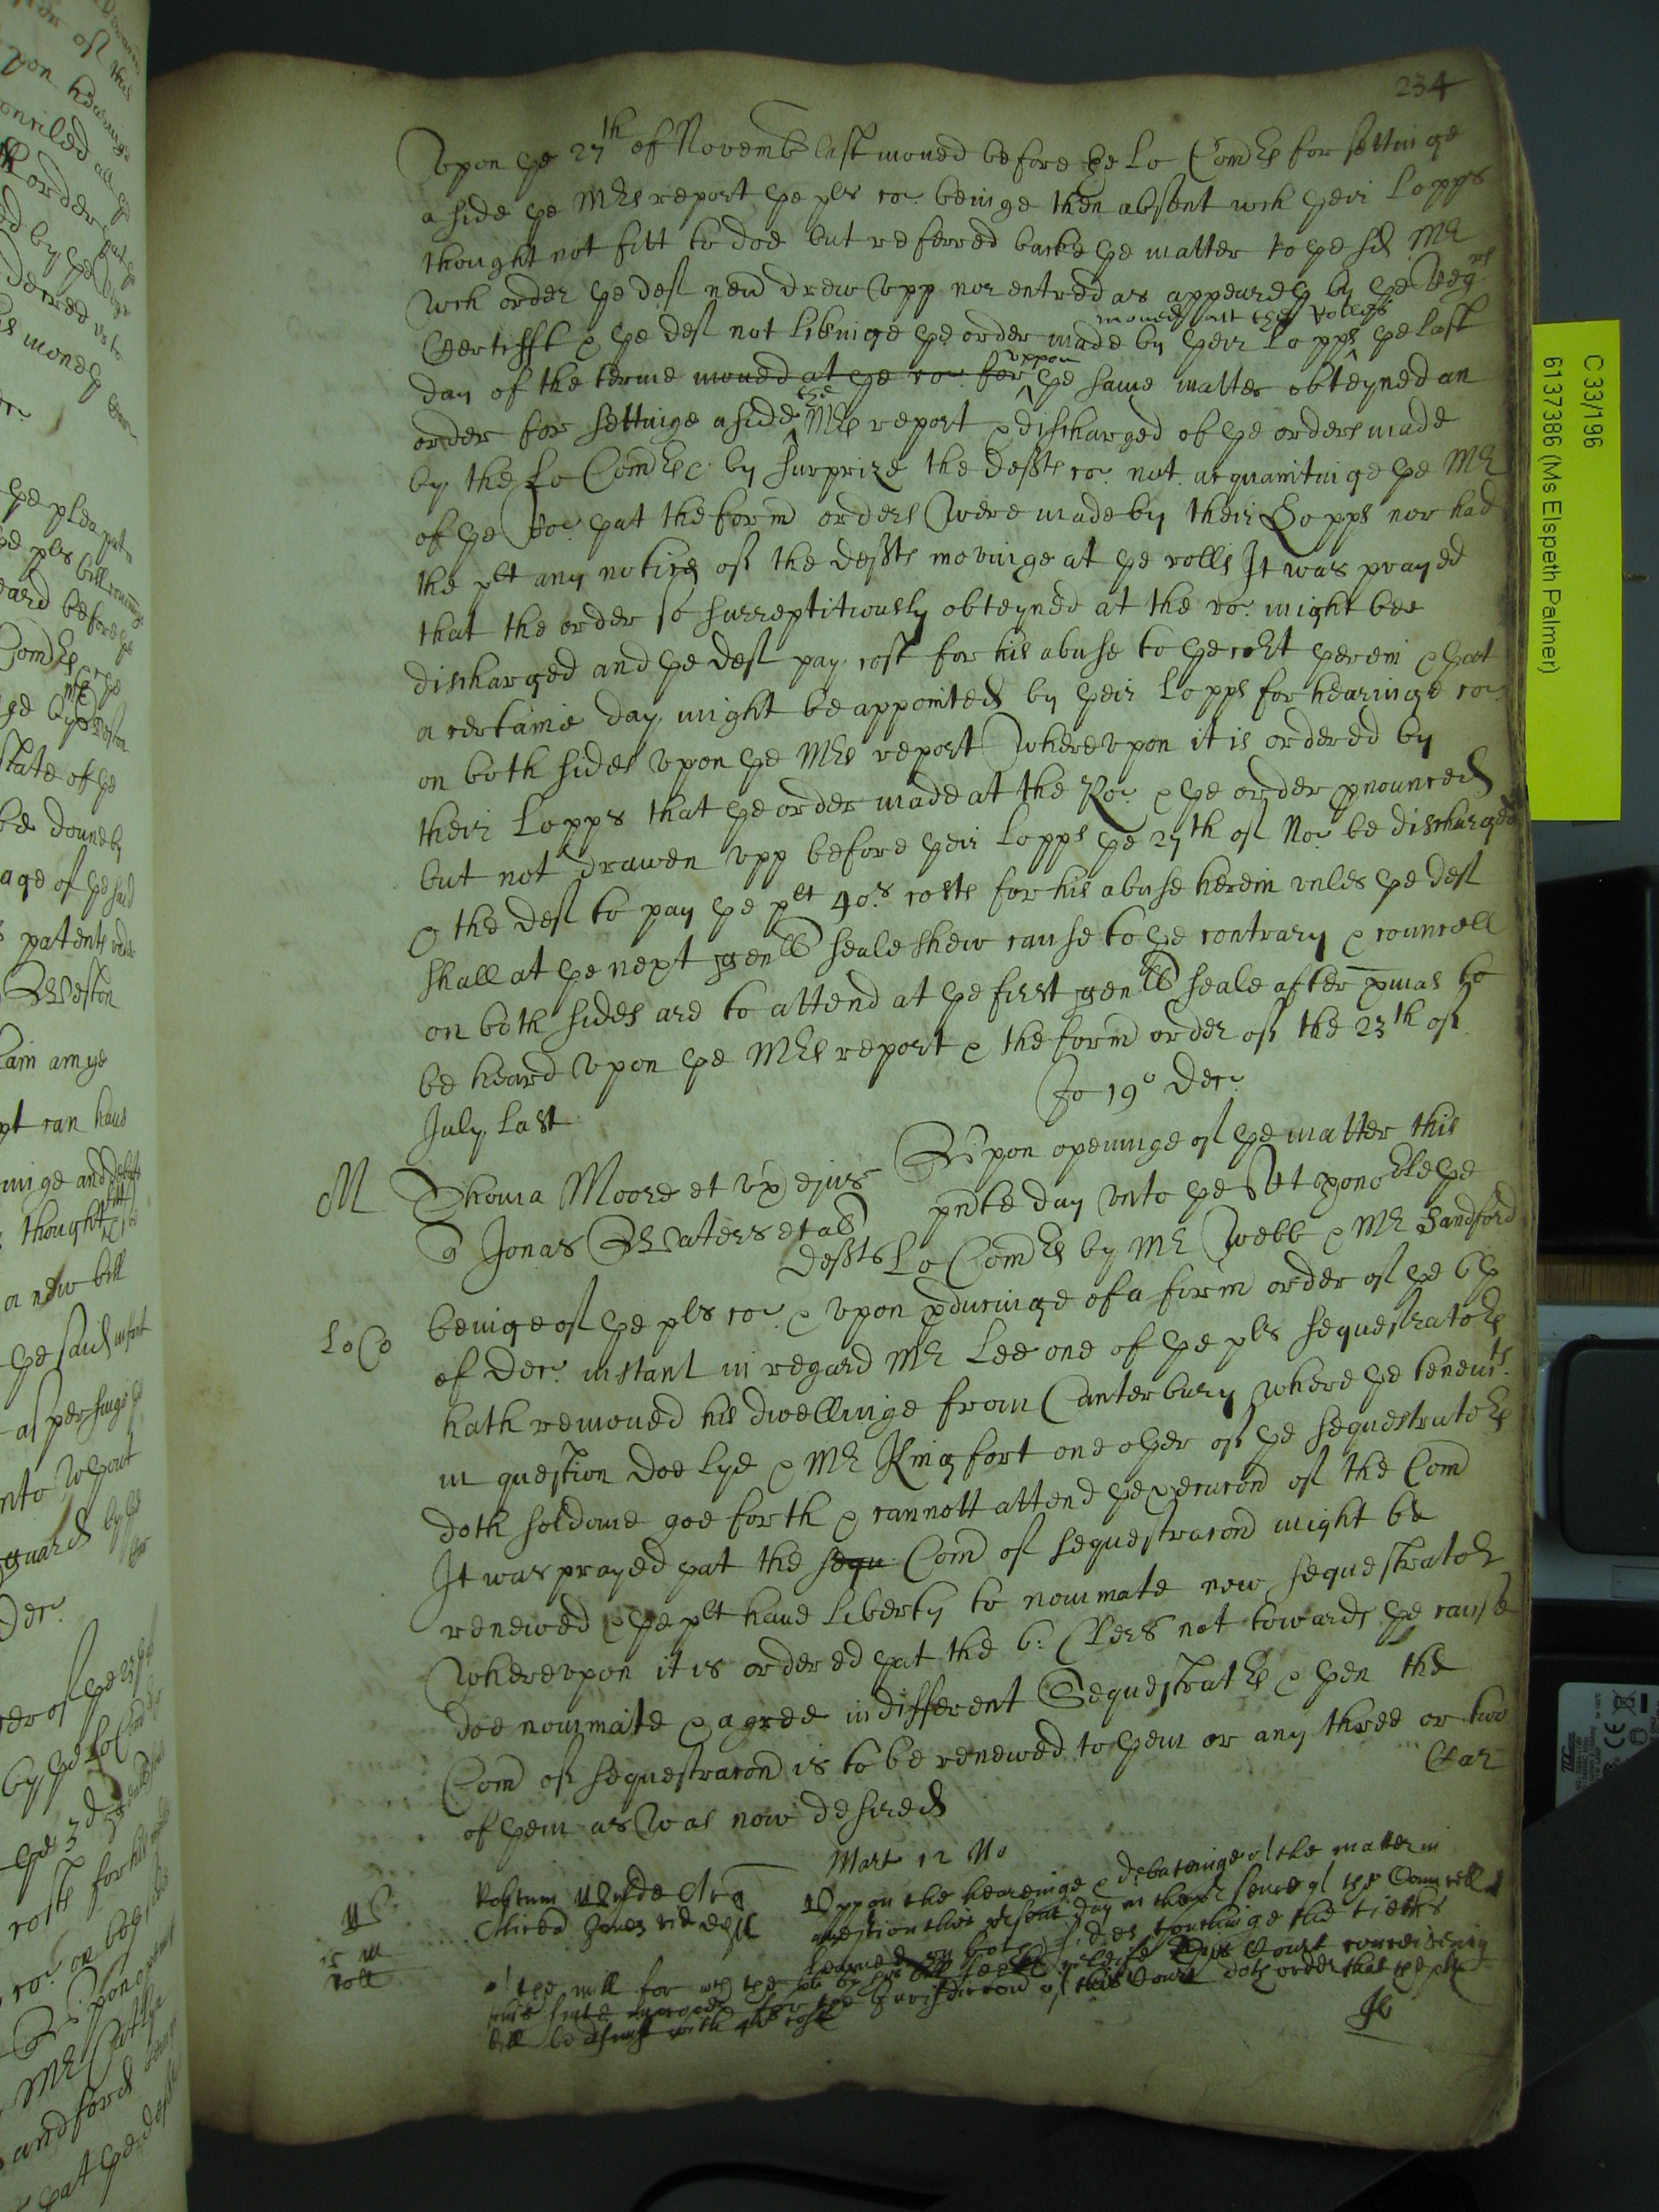 234
Vpon ye 27th of Novemb last moued before ye Lo Comrs for settinge
aside ye Mrs report ye pls co: beinge then absent wch yeir Lopps
thought not fitt to doe but referred backe ye matter to ye sd Mr
wch order ye deft neu drew vpp nor entred as appeareth by ye Regrs
Certifft & ye deft not likeinge ye order made by yeir Lopps ye last
moued att the Rolles
day of the terme moued at ye ro: for vppon ye same matter obteyned an
order for settinge aside the Mrs report & discharged of ye orders made
by the Lo Comrs & by surprize the defts co: not acquaintinge ye Mr
of ye Ro: yat the form orders were made by their Lopps nor had
the plt any notice of the defts movinge at ye rolls It was prayed
that the order so surreptitiously obteyned at the ro: might bee
discharged and ye deft pay cost for his abuse to ye court yerein & yat
a certaine day might be appointed by yeir Lopps for hearinge co:
on both sides vpon ye Mrs report Wherevpon it is ordered by
their Lopps that ye order made at the Ro: & ye order pnounced
but not drawen vpp before yeir Lopps ye 27th of No: be discharged
& the deft to pay ye plt 40s costs for his abuse herein vnles ye deft
shall at ye next genll seale shew cause to ye contrary & councell
on both sides are to attend at ye first genll seale after xpmas to
be heard vpon ye Mrs report & the form order of the 23th of
July last
Jo 19o Dec:
M
Thoma Moore et vx ejus
Jonas Waters et al
defts
Vpon openinge of ye matter this
pnte day vnto ye Rt honoble ye
Lo Comrs by Mr Webb & Mr Sandford
Lo Co
beinge of ye pls co: & vpon pducinge of a form order of ye 6th
of Dec: instant in regard Mr Lee one of ye pls sequestrators
hath remoued his dwellinge from Canterbury where ye tenemts
in question doe lye & Mr Kingfort one oyer of ye sequestrators
doth seldome goe forth & cannott attend ye execucon of the Com
It was prayed yat the sequ Com of sequestracon might be
renewed & ye plt haue liberty to nominate new sequestrators
Wherevpon it is ordered yat the 6: Clers not towards ye cause
doe nominate & agree indifferent Sequestratrs & yen the
Com of sequestracon is to be renewed to yem or any three or two
of yem as was now desired
Mart 12 No
Vppon the heareinge & debateinge of the matter in
question this present day in the presence of the Councell
Learned on both sides touchinge the tiethes
of the mill for wch the
this Court
this Court doth order that the plts
bill be dismist with